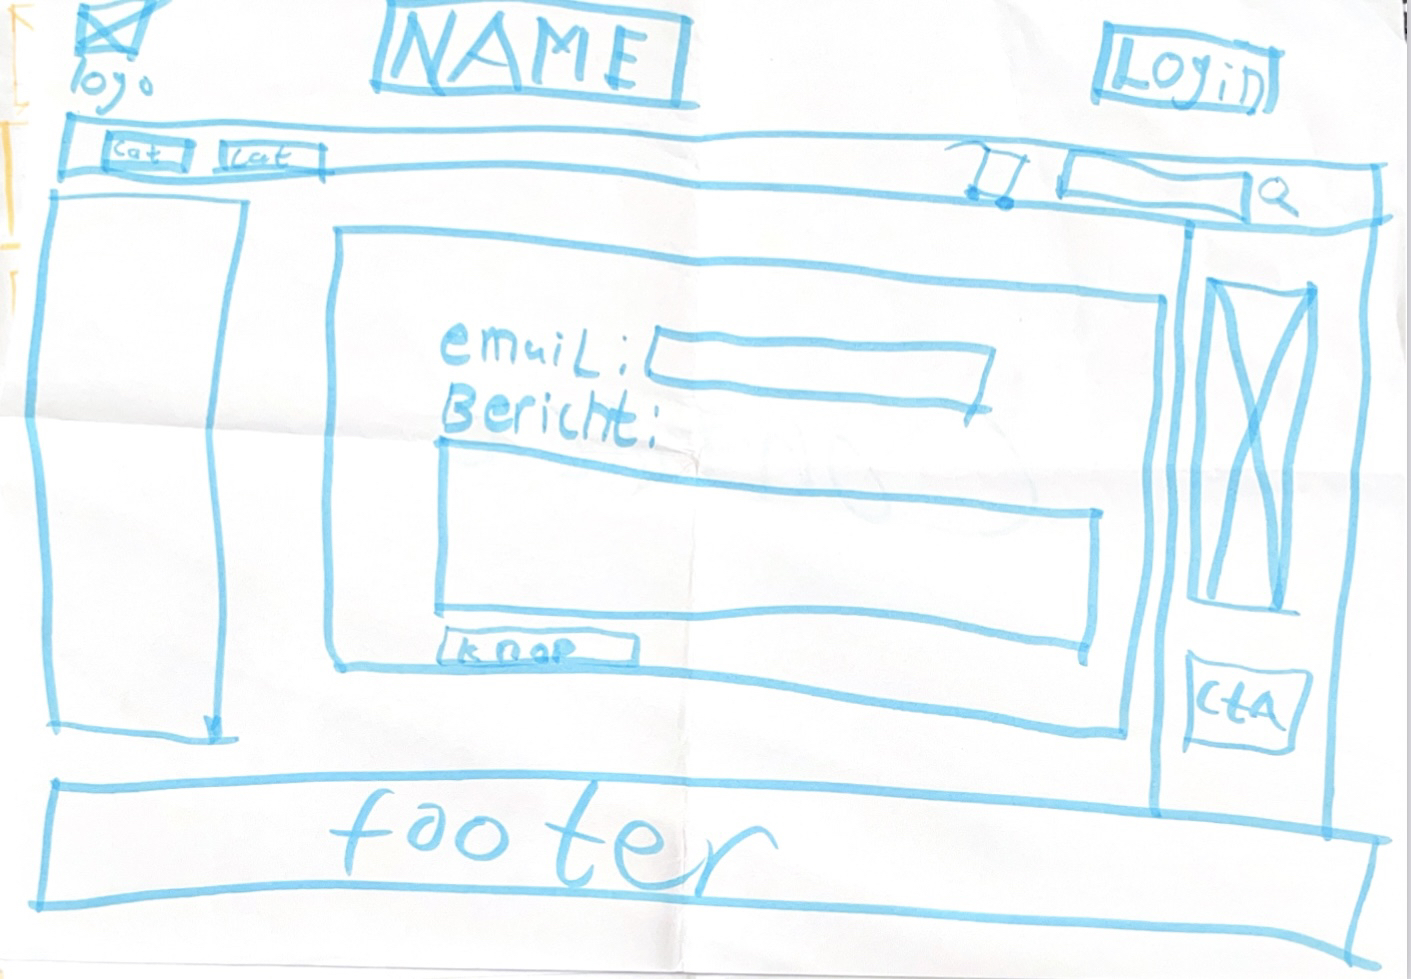 logo
NAME
Login
cat
cat
email:
Bericht:
knop
CtA
footer